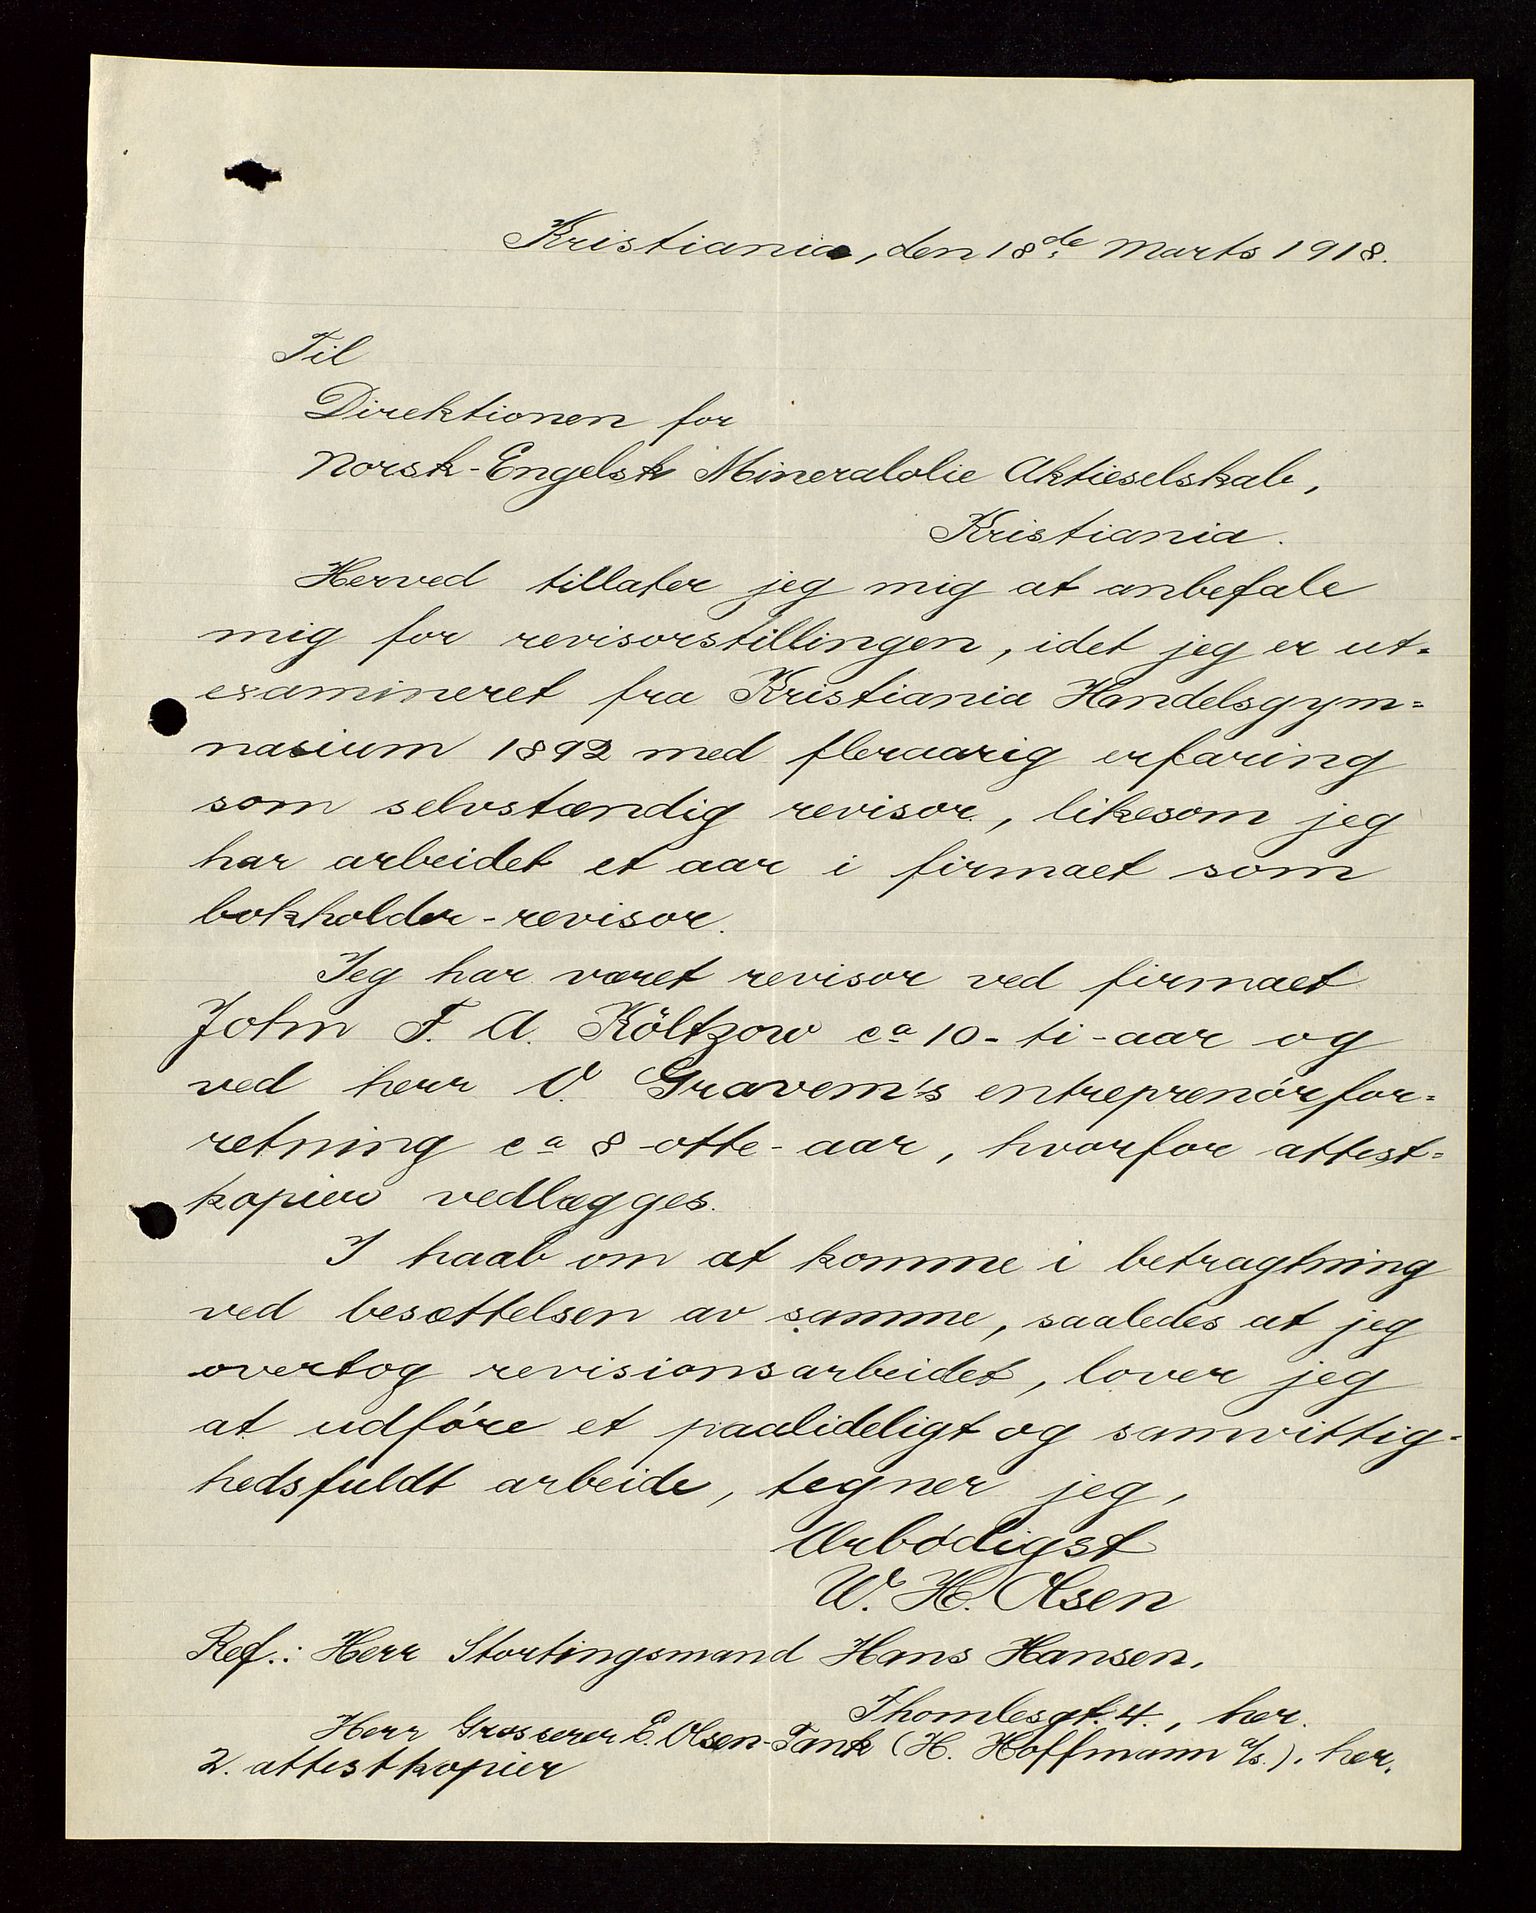 Kristiania, den 18de Marts 1918.
Til
Direktionen for
Norsk-Engelsk Mineralolie Aktieselskab,
Kristiania.
Herved tillater jeg mig at anbefale
mig for revisorstillingen, idet jeg er ut-
examineret fra Kristiania Handelsgym-
nasium 1892 med fleraarig erfaring
som selvstændig revisor, likesom jeg
har arbeidet et aar i firmaet som
bokholder-revisor.
Jeg har været revisor ved firmaet
John F. A. Költzow ca 10-ti-aar og
ved herr O. Gravem's entreprenörfor-
retning ca 8-otte-aar, hvorfor attest-
kopier vedlægges.
I haab om at komme i betragtning
ved besættelsen av samme, saaledes at jeg
overtog revisionsarbeidet, lover jeg
at udföre et paalideligt og samvittig-
hedsfuldt arbeide, tegner jeg,
Ærbödigst
W. H. Olsen
Ref.: Herr Stortingsmand Hans Hansen,
Thomlesgt. 4., her.
Herr Grosserer E. Olsen-Tank (H. Hoffmann a/s.), her.
2. attestkopier